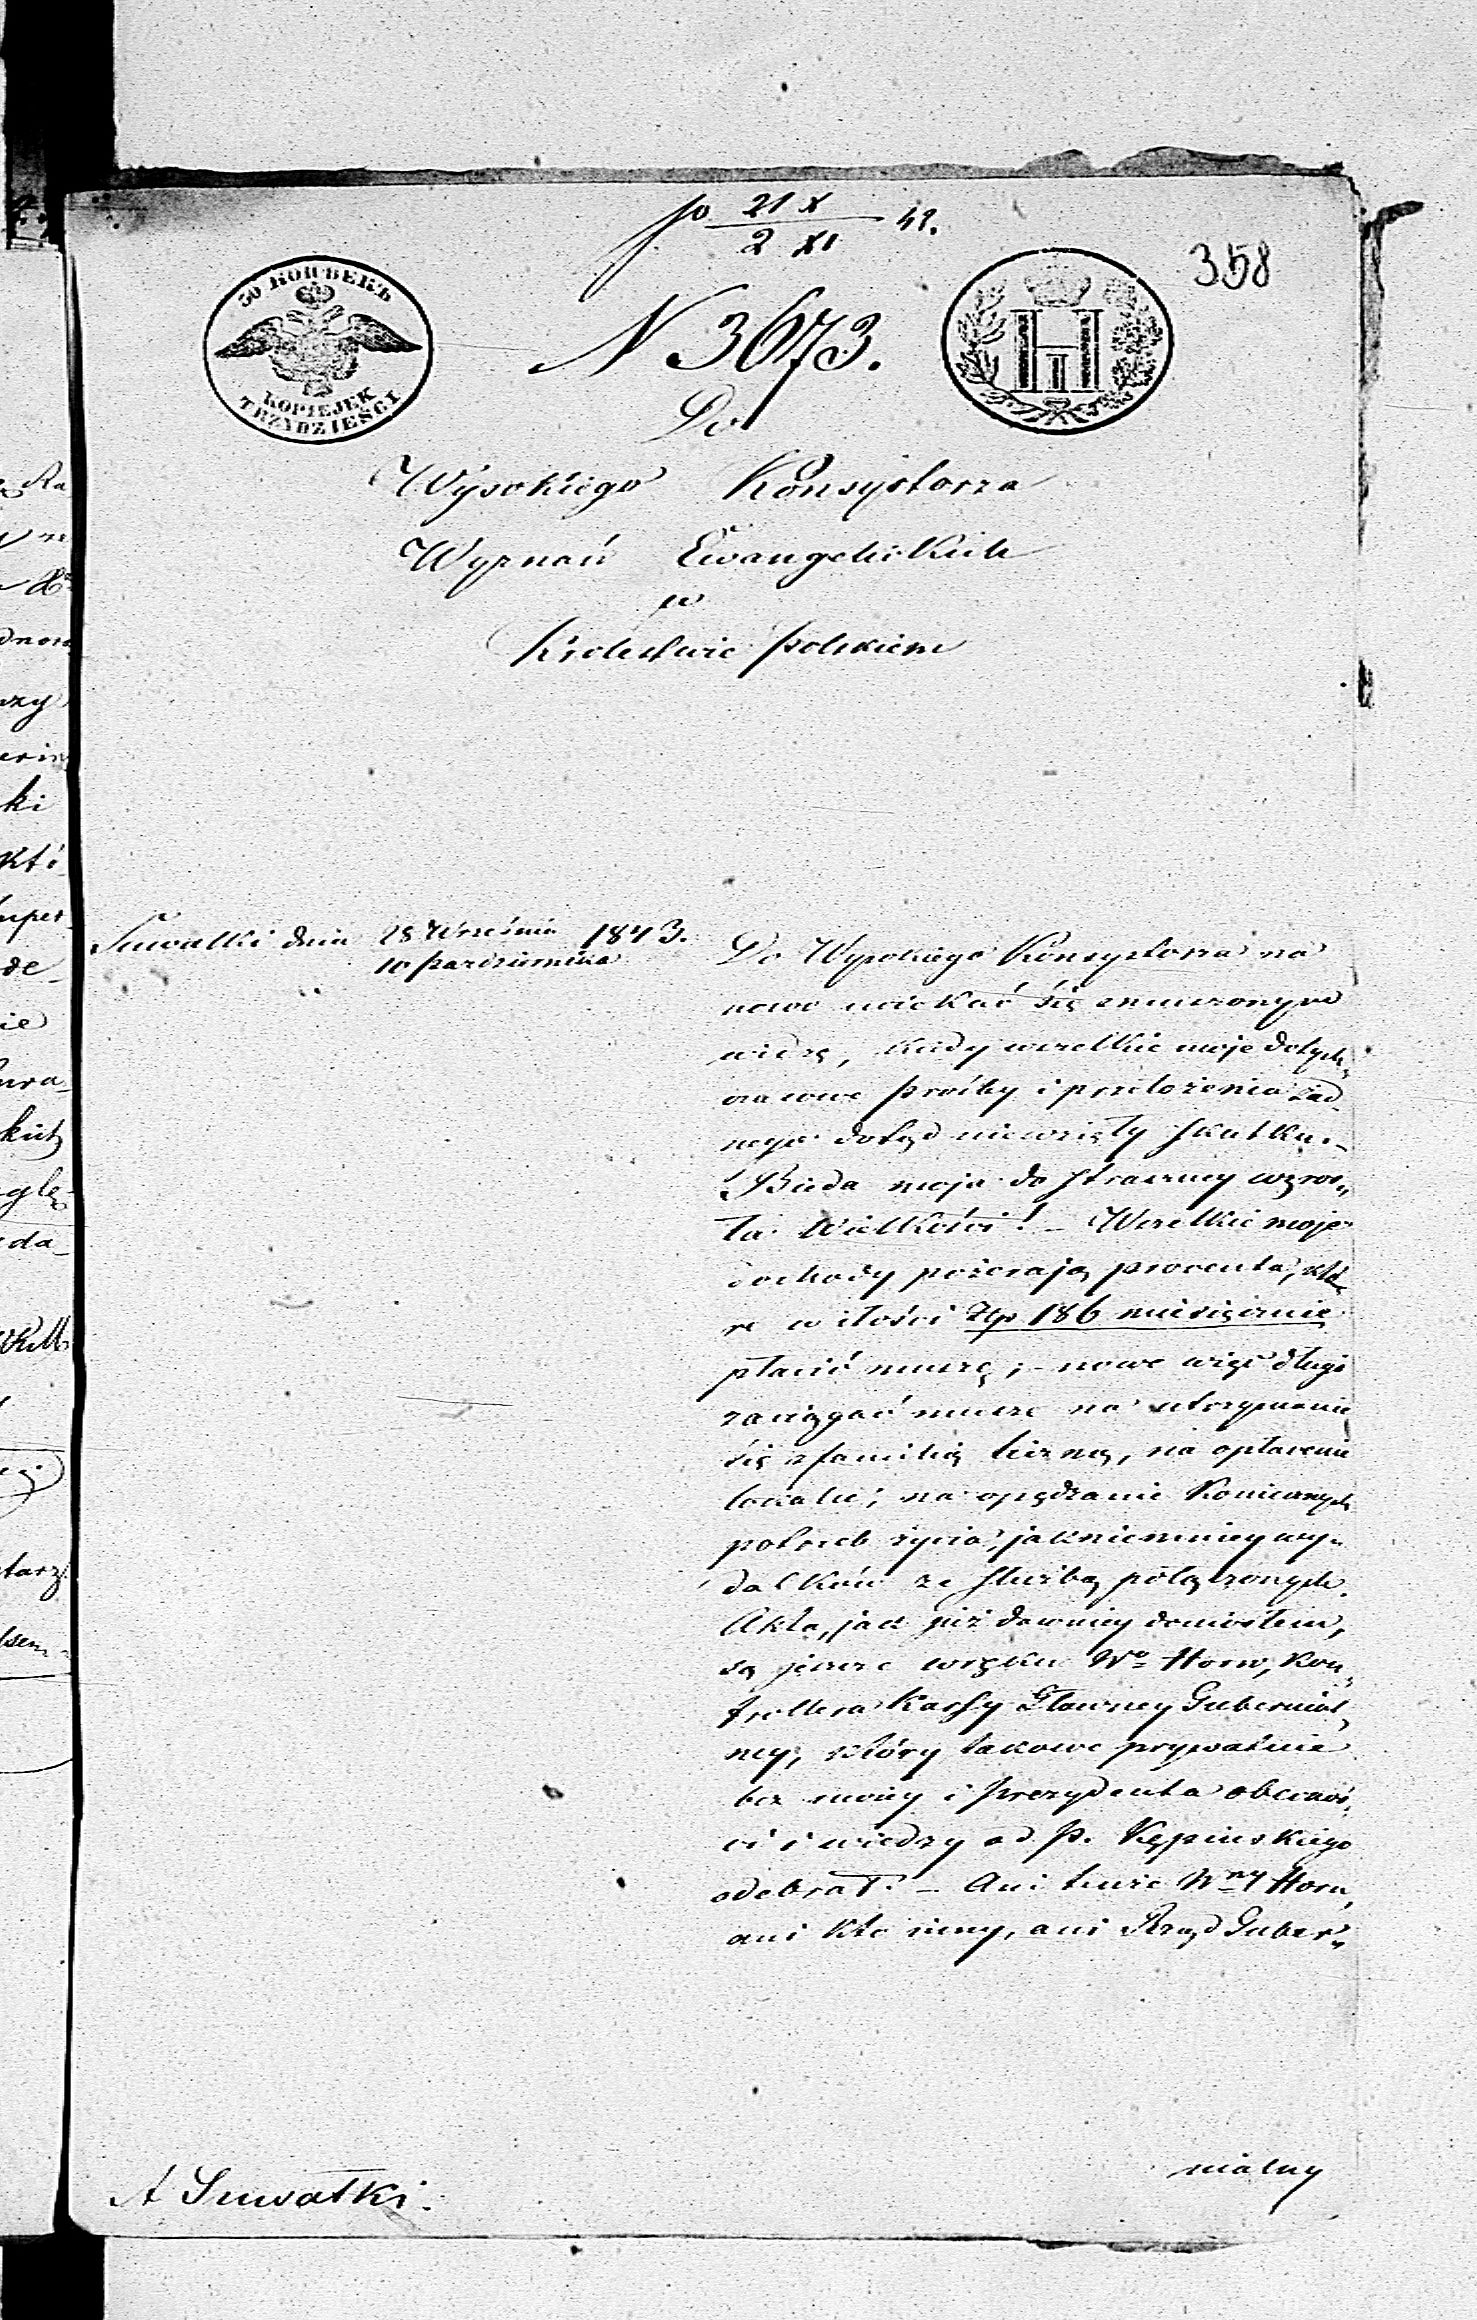 po 21 X / 2 XI 43.
358
30 КОПѢЕКЪ
KOPIEJEK
TRZYDZIEŚCI
N 3673.
Do
Wysokiego Konsystorza
Wyznań Ewangelickich
w
Królestwie Polskiem
Suwałki dnia 28 Września / 10 Października 1843.
Do Wysokiego Konsystorza na
nowo uciekać się zmuszonym
widzę, kiedy wszelkie moje dotych„
czasowe prośby i przełożenia żad„
nego dotąd niewzięły skutku.–
Bieda moja do straszney wzros„
ła wielkości! – Wszelkie moje
dochody pożerają procenta, któ„
re w ilości Złp 186 miesięcznie
płacić muszę; – nowe więc długi
zaciągać muszę na utrzymanie
się z familią liczną, na opłacenie
localu, na opędzanie koniecznych
potrzeb życia, jakniemniey wy„
datków ze służbą połączonych.
Akta, jak już dawniey doniosłem,
są jeszcze wręku Wo Horn, Kon„
trollera Kassy Główney Gubernial„
ney, który takowe prywatnie
bez moiey i Prezydenta obecnoś„
ci i wiedzy od P. Kępinskiego
odebrał. – Ani tenże Wny Horn,
ani kto inny, ani Rząd Guber„
nialny
A Suwałki.